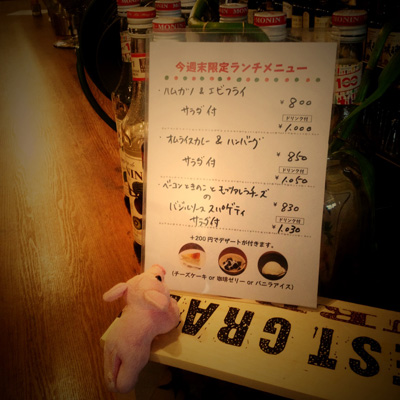 MONIN
MONIN
MONIN
今週末限定ランチメニュー
・ハムカツ & エビフライ
サラダ付
¥800
ドリンク付
¥1.000
・オムライスカレー & ハンバーグ
サラダ付
¥850
ドリンク付
¥1.050
・ベーコンときのことモッツァレラチーズ
の
バジルソース スパゲティ
サラダ付
¥830
ドリンク付
¥1.030
+200円でデザートが付きます。
(チーズケーキ or 珈琲ゼリー or バニラアイス)
EST GRA